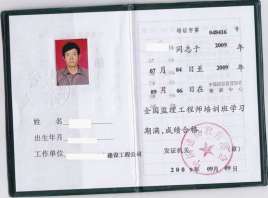 姓 名
出生年月
工作单位 建设工程公司
培证字第 040416 号
同志于 2009 年
07 月 04 日至 2009 年
09 月 06 日在
全国监理工程师培训班学习
期满,成绩合格。
发证机关 (章)
2009 年 09 月 09 日